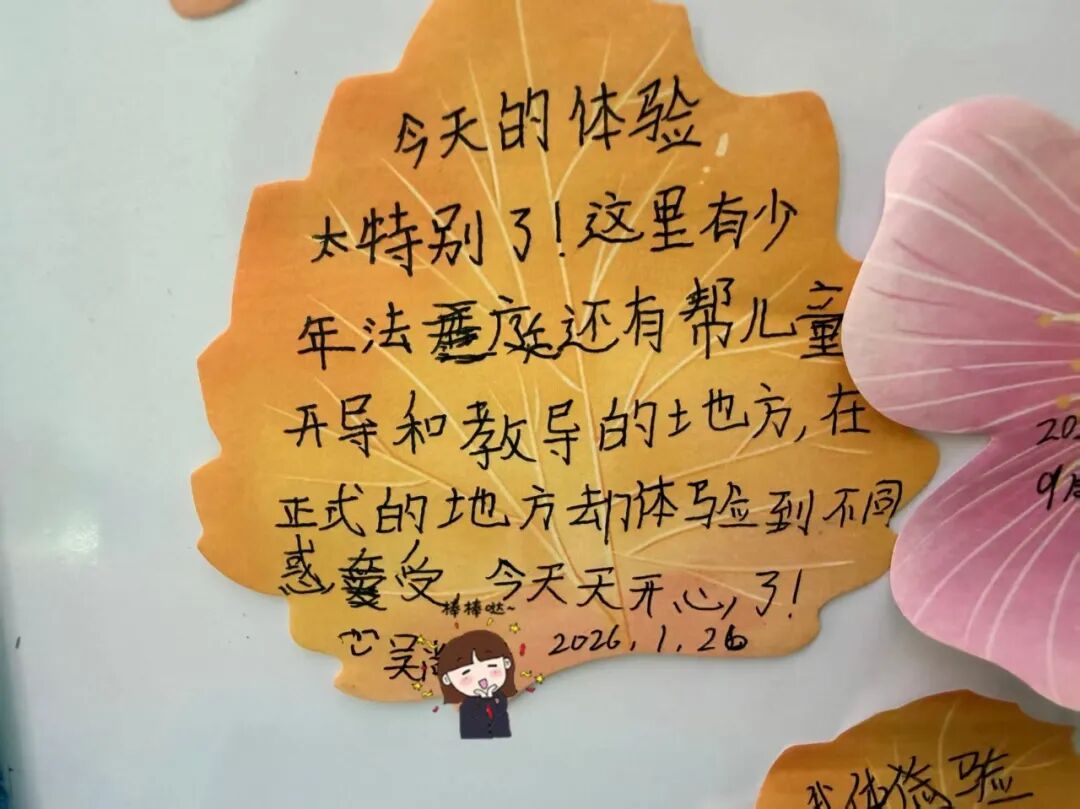 今天的体验
太特别了！这里有少
年法庭还有帮儿童
开导和教导的地方,在
正式的地方却体验到不同
感受,今天天开心,了！
棒棒哒~
吴
2026.1.26
202
9月
我体验